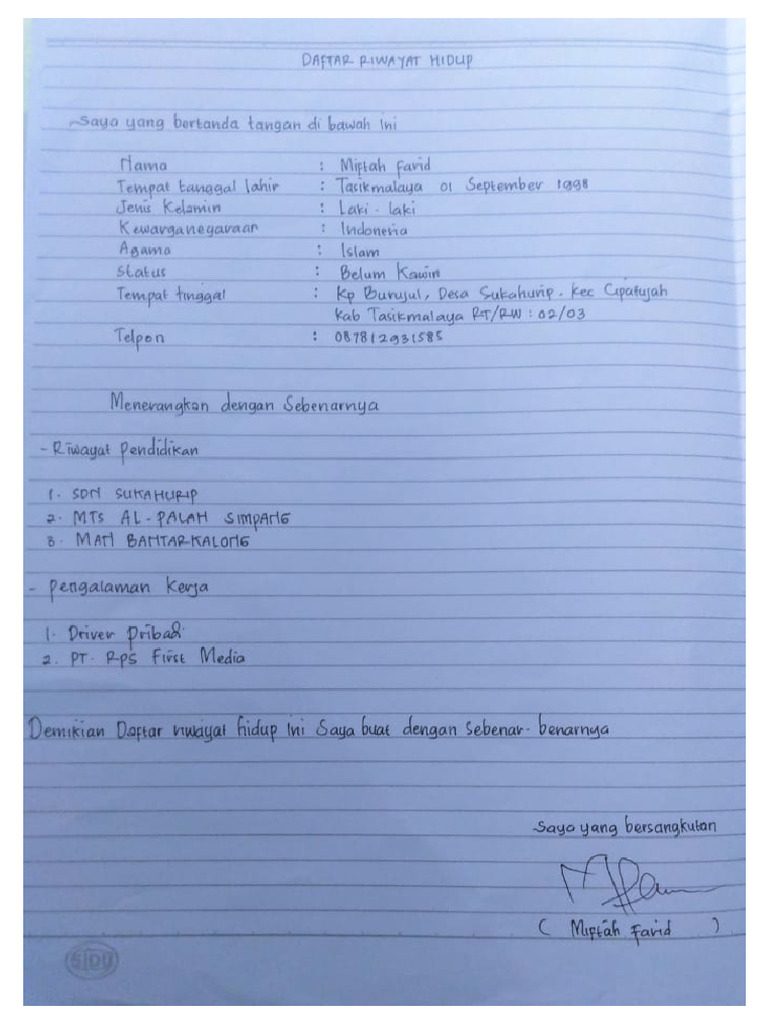 DAFTAR RIWAYAT HIDUP
Saya yang bertanda tangan di bawah ini
Nama : Miftah Farid
Tempat tanggal lahir : Tasikmalaya 01 September 1998
Jenis Kelamin : Laki - laki
Kewarganegaraan : Indonesia
Agama : Islam
Status : Belum Kawin
Tempat tinggal : Kp Burujul, Desa Sukahurip. Kec Cipatujah
Kab Tasikmalaya RT/RW : 02/03
Telpon : 087812931585
Menerangkan dengan Sebenarnya
- Riwayat Pendidikan
1. SDN SUKAHURIP
2. MTS AL - PALAH SIMPANG
3. MAN BANTARKALONG
- Pengalaman Kerja
1. Driver Pribadi
2. PT. Rps First Media
Demikian Daftar riwayat hidup ini Saya buat dengan Sebenar - benarnya
Saya yang bersangkutan
( Miftah Farid )
SIDU